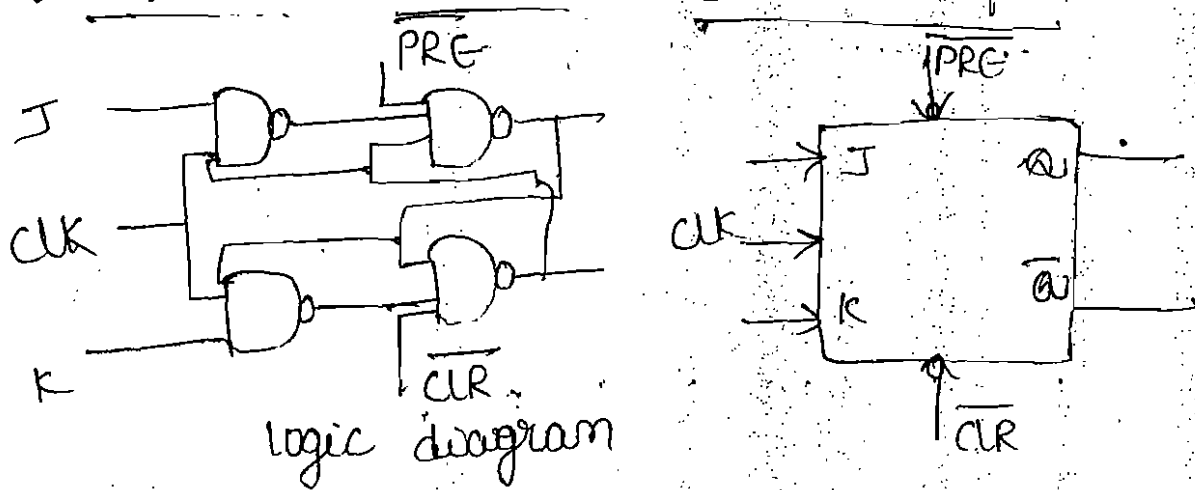 P̅R̅E̅
J
CLK
K
C̅L̅R̅
logic diagram
P̅R̅E̅
J Q
CLK
K Q̅
C̅L̅R̅